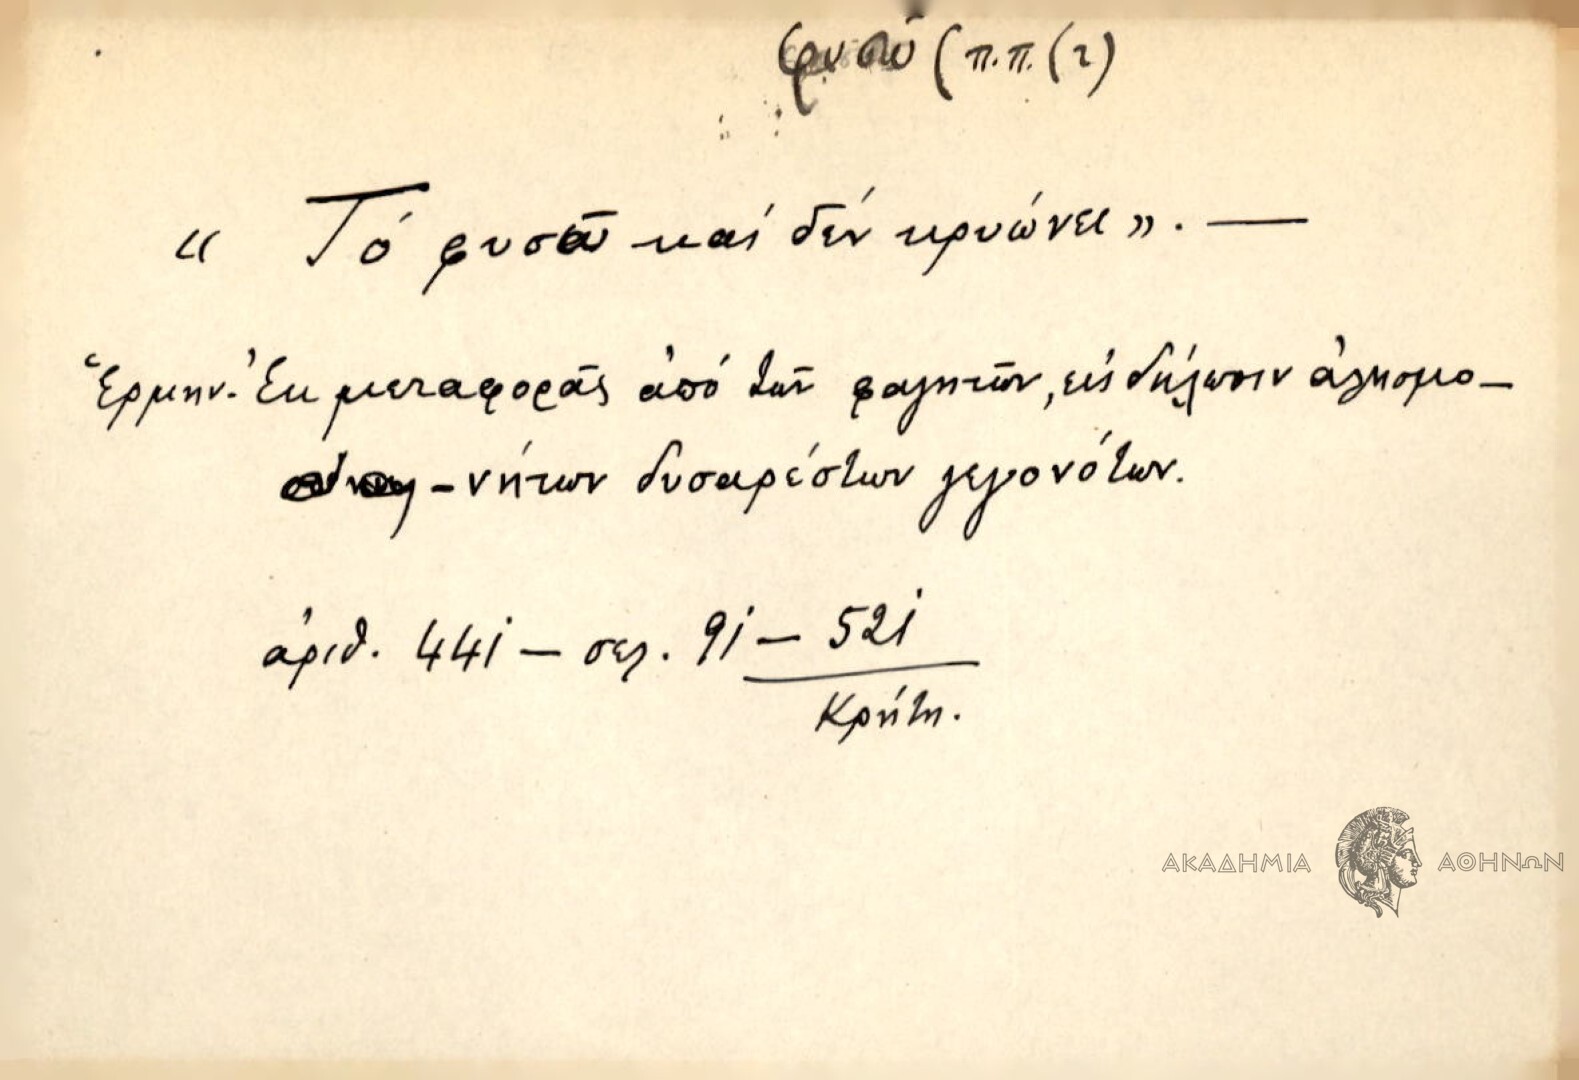 φυσῶ (π.π. (2)
« Τό φυσᾶ καί δέν κρυώνει». —
Ἑρμην. Ἐκ μεταφορᾶς ἀπό τῶν φαγητῶν, εἰς δήλωσιν ἀλησμο-
-νήτων δυσαρέστων γεγονότων.
ἀριθ. 441 — σελ. 91 — 521
Κρήτη.
ΑΚΑΔΗΜΙΑ ΑΘΗΝΩΝ